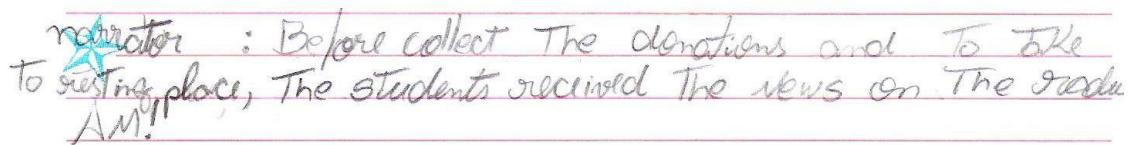 narrator : Before collect The donations and To Take
To resting place, The students received The news on The
AM!